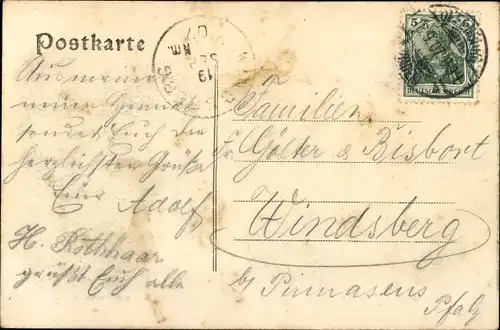 Postkarte
Aus meiner
neuen Heimat
sendet Euch die
herzlichsten Grüße
Euer Adolf
H. Rothhaar
grüßt Euch alle
Familien
Fr. Gölter & Bisbort
Windsberg
b/ Pirmasens
Pfalz
5
DEUTSCHES REICH